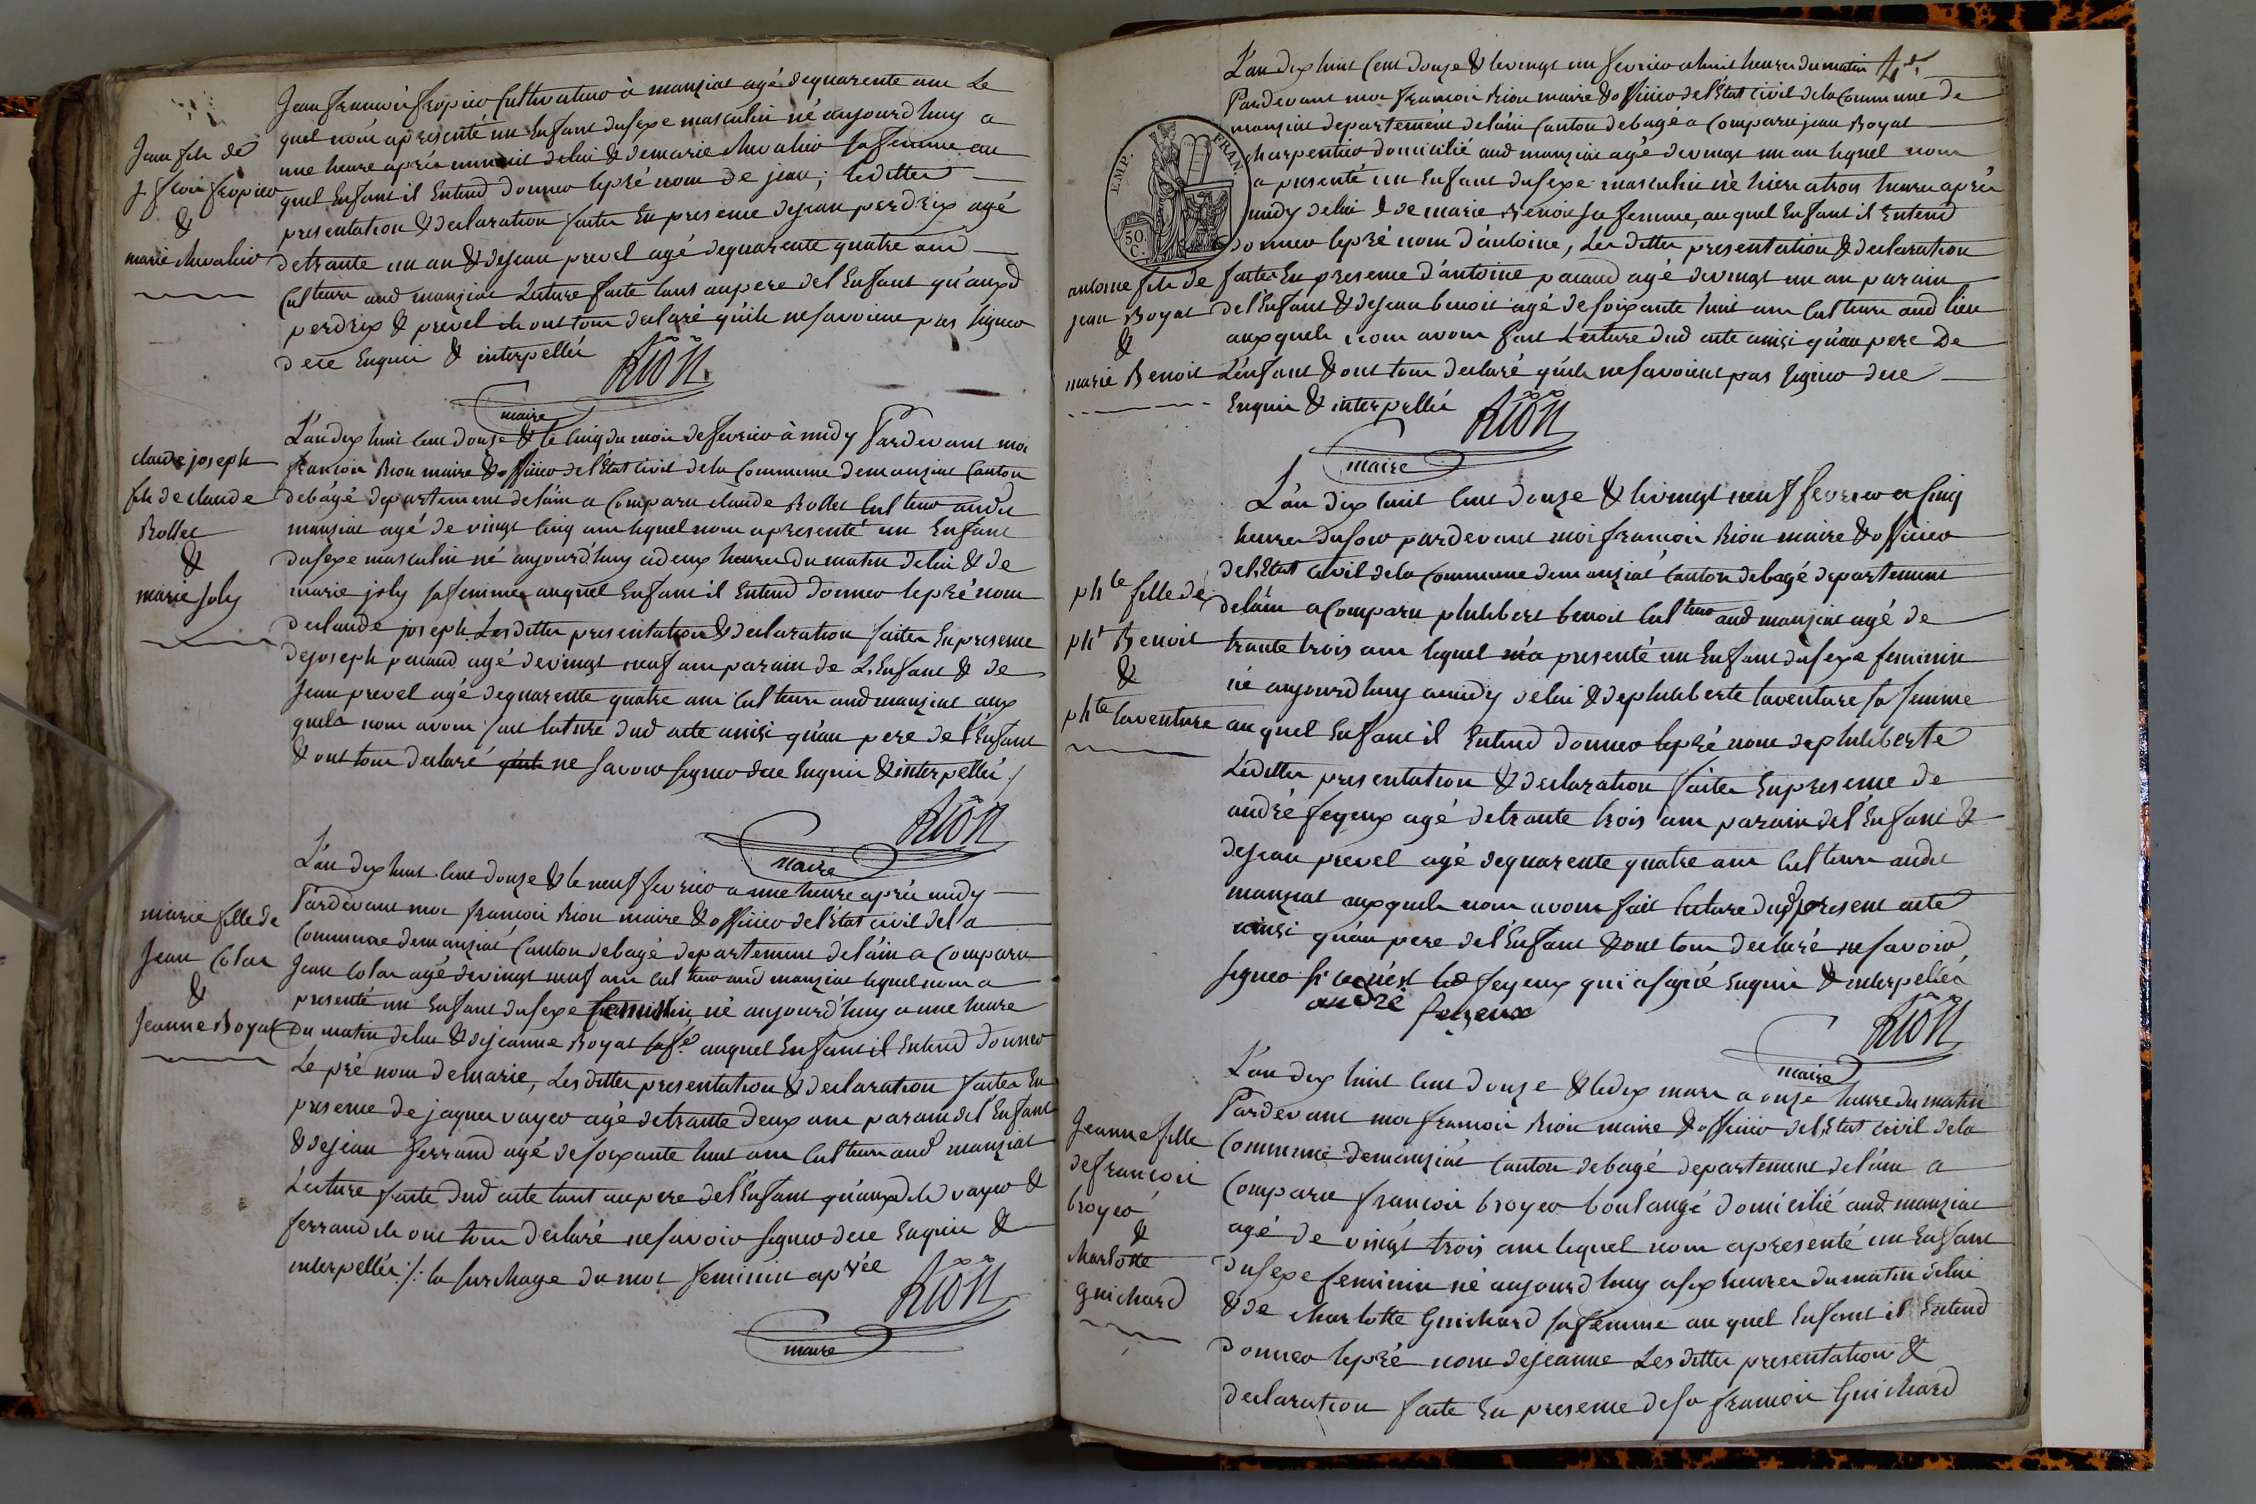 Jean françois fropier Cultivateur à manziat agé de quarente ans Le
quel nous a presenté un Enfant du sexe masculin né aujourd'huy a
une heure après minuit de lui & de marie chevalier sa femme au
quel Enfant il Entend donner le pré nom de jean; Lesdittes
presentation & declaration faites En presence de jean perdrix agé
de trante un an & de jean prevel agé de quarente quatre ans
Cult.eurs aud manziat Lecture faite tant au pere de l'Enfant qu'auxd
perdrix & prevel ils ont tous declaré qu'ils ne savoient pas signer
de ce Enquis & interpellés
Rion
maire
Jean fils de
j f.cois fropier
&
marie chevalier
L'an dix huit cent douze & le cinq du mois de fevrier à midy Pardevant moi
françois Rion maire & officier de l'Etat civil de la Commune de manziat Canton
de bâgé departement de l'ain a Comparu claude Rollet Cul.teur audit
manziat agé de vingt cinq ans lequel nous a presenté un Enfant
du sexe masculin né aujourd'huy a deux heures du matin de lui & de
marie joly sa femme auquel Enfant il Entend donner le pré nom
de claude joseph Lesdittes presentation & declaration faites En presence
de joseph paiaud agé de vingt neuf ans parain de L'Enfant & de
Jean prevel agé de quarente quatre ans Cul.teurs aud manziat aux
quels nous avons fait lecture dud acte ainsi qu'au pere de l'Enfant
& ont tous declaré qu'ils ne savoir signer de ce Enquis & interpellés ./
Rion
maire
claude joseph
fils de claude
Rollet
&
marie joly
L'an dix huit cent douze & le neuf fevrier a une heure après midy
Pardevant moi françois Rion maire & officier de l'Etat civil de la
Commune de manziat Canton de bagé departement de l'ain a Comparu
Jean Colas agé de vingt neuf ans cul.teur aud manziat lequel nous a
presenté un Enfant du sexe feminin, né aujourd'huy a une heure
du matin de lui & de jeanne Boyat sa f.e auquel Enfant il Entend donner
Le pré nom de marie, Lesdittes presentation & declaration faites En
presence de jaques vayer agé de trante deux ans parain de l'Enfant
& de jean ferrand agé de soixante huit ans Cul.teurs aud manziat
Lecture faite dud acte tant au pere de l'Enfant qu'auxd vayer &
ferrand ils ont tous declaré ne savoir signer de ce Enquis &
interpellés ./. la surchage du mot feminin aprée
Rion
maire
marie fille de
Jean Colas
&
Jeanne Boyat
L'an dix huit Cent douze & le vingt un fevrier a huit heures du matin
Pardevant moi françois Rion maire & officier de l'Etat civil de la Commune de
manziat departement de l'ain Canton de bagé a Comparu jean Boyat
charpentier domicilié aud manziat agé de vingt un an lequel nous
a presenté un Enfant du sexe masculin né hier a trois heures après
midy de lui & de marie Benoit sa femme, auquel Enfant il Entend
donner le pré nom d'antoine, Les dittes presentation & declaration
faites En presence d'antoine paiaud agé de vingt un an parain
de l'Enfant & de jean benoit agé de soixante huit ans Cul.teurs aud lieu
auxquels nous avons fait Lecture dud acte ainsi qu'au pere De
L'enfant & ont tous declaré qu'ils ne savoient pas signer de ce
Enquis & interpellés
Rion
maire
EMP. FRAN.
50 C.
antoine fils de
jean Boyat
&
marie Benoit
L'an dix huit cent douze & le vingt neuf fevrier a Cinq
heures du soir pardevant moi françois Rion maire & officier
de l'Etat civil de la Commune de manziat Canton de bagé departement
de l'ain a Comparu philibert benoit Cul.teur aud manziat agé de
trante trois ans lequel m'a presenté un Enfant du sexe feminin
né aujourd'huy a midy de lui & de philiberte laventure sa femme
auquel Enfant il Entend donner le pré nom de philiberte
Lesdittes presentation & declaration faites En presence de
andré feyeux agé de trante trois ans parain de l'Enfant &
de jean prevel agé de quarente quatre ans Cul.teurs audit
manziat auxquels nous avons fait lecture du present acte
ainsi qu'au pere de l'Enfant & ont tous declaré ne savoir
signer si ce n'est led feyeux qui a signé Enquis & interpellés
andré feyeux
Rion
maire
ph.te fille de
ph.t Benoit
&
ph.te laventure
L'an dix huit cent douze & le dix mars a onze heures du matin
Pardevant moi françois Rion maire & officier de l'Etat civil de la
Commune de manziat Canton de bagé departement de l'ain a
Comparu françois broyer boulangé domicilié aud. manziat
agé de vingt trois ans lequel nous a presenté un Enfant
du sexe feminin né aujourd'huy a six heures du matin de lui
& de charlotte Guichard sa femme auquel Enfant il Entend
donner le pré nom de jeanne Les dittes presentation &
declaration faite En presence de françois Guichard
Jeanne fille
de françois
broyer
&
charlotte
guichard